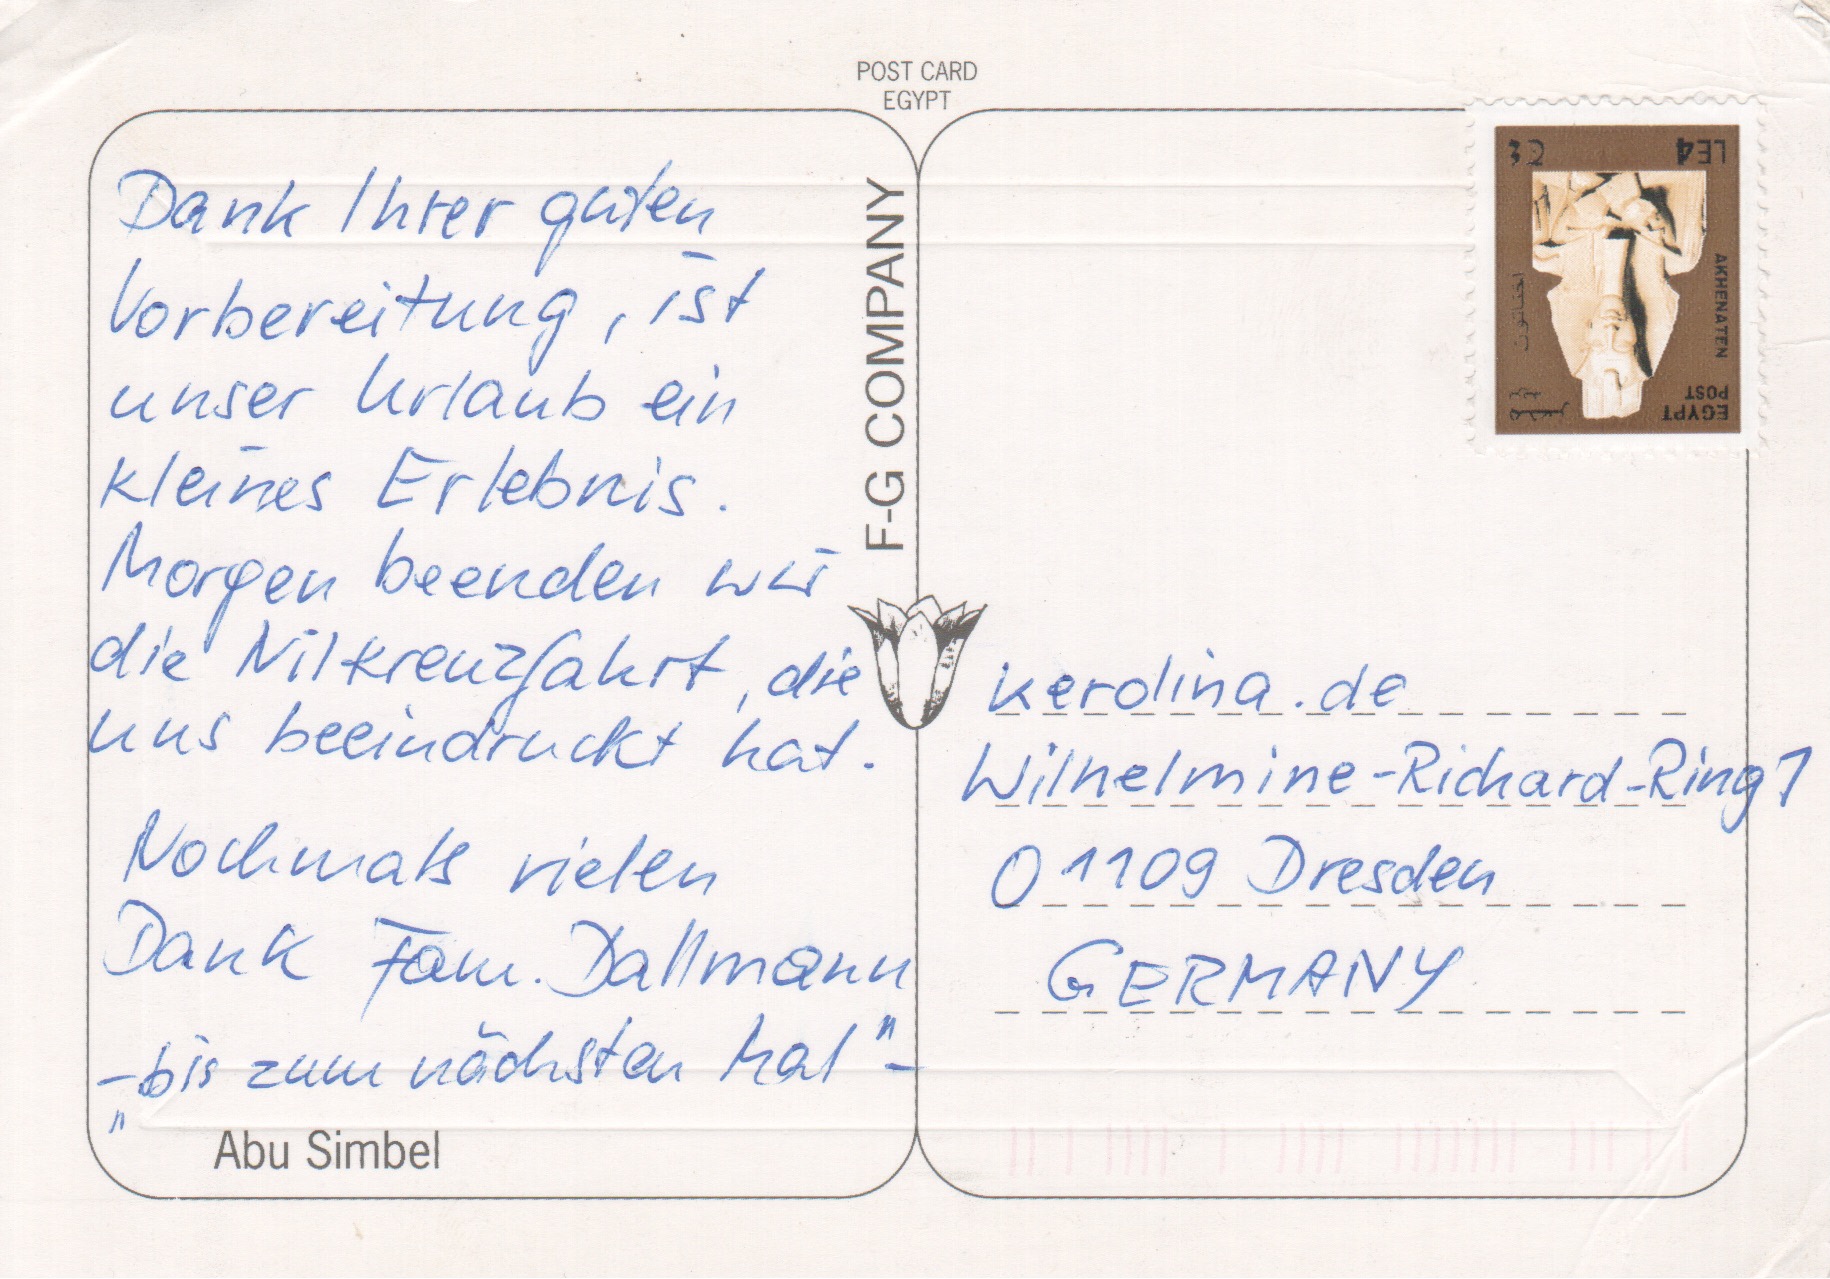 POST CARD
EGYPT
Dank Ihrer guten
Vorbereitung, ist
unser Urlaub ein
kleines Erlebnis.
Morgen beenden wir
die Nilkreuzfahrt, die
uns beeindruckt hat.
Nochmals vielen
Dank Fam. Dallmann
- „bis zum nächsten Mal" -
Abu Simbel
F-G COMPANY
LE4
AKHENATEN
اخناتون
EGYPT
POST
kerolina.de
Wilhelmine-Richard-Ring 1
01109 Dresden
GERMANY